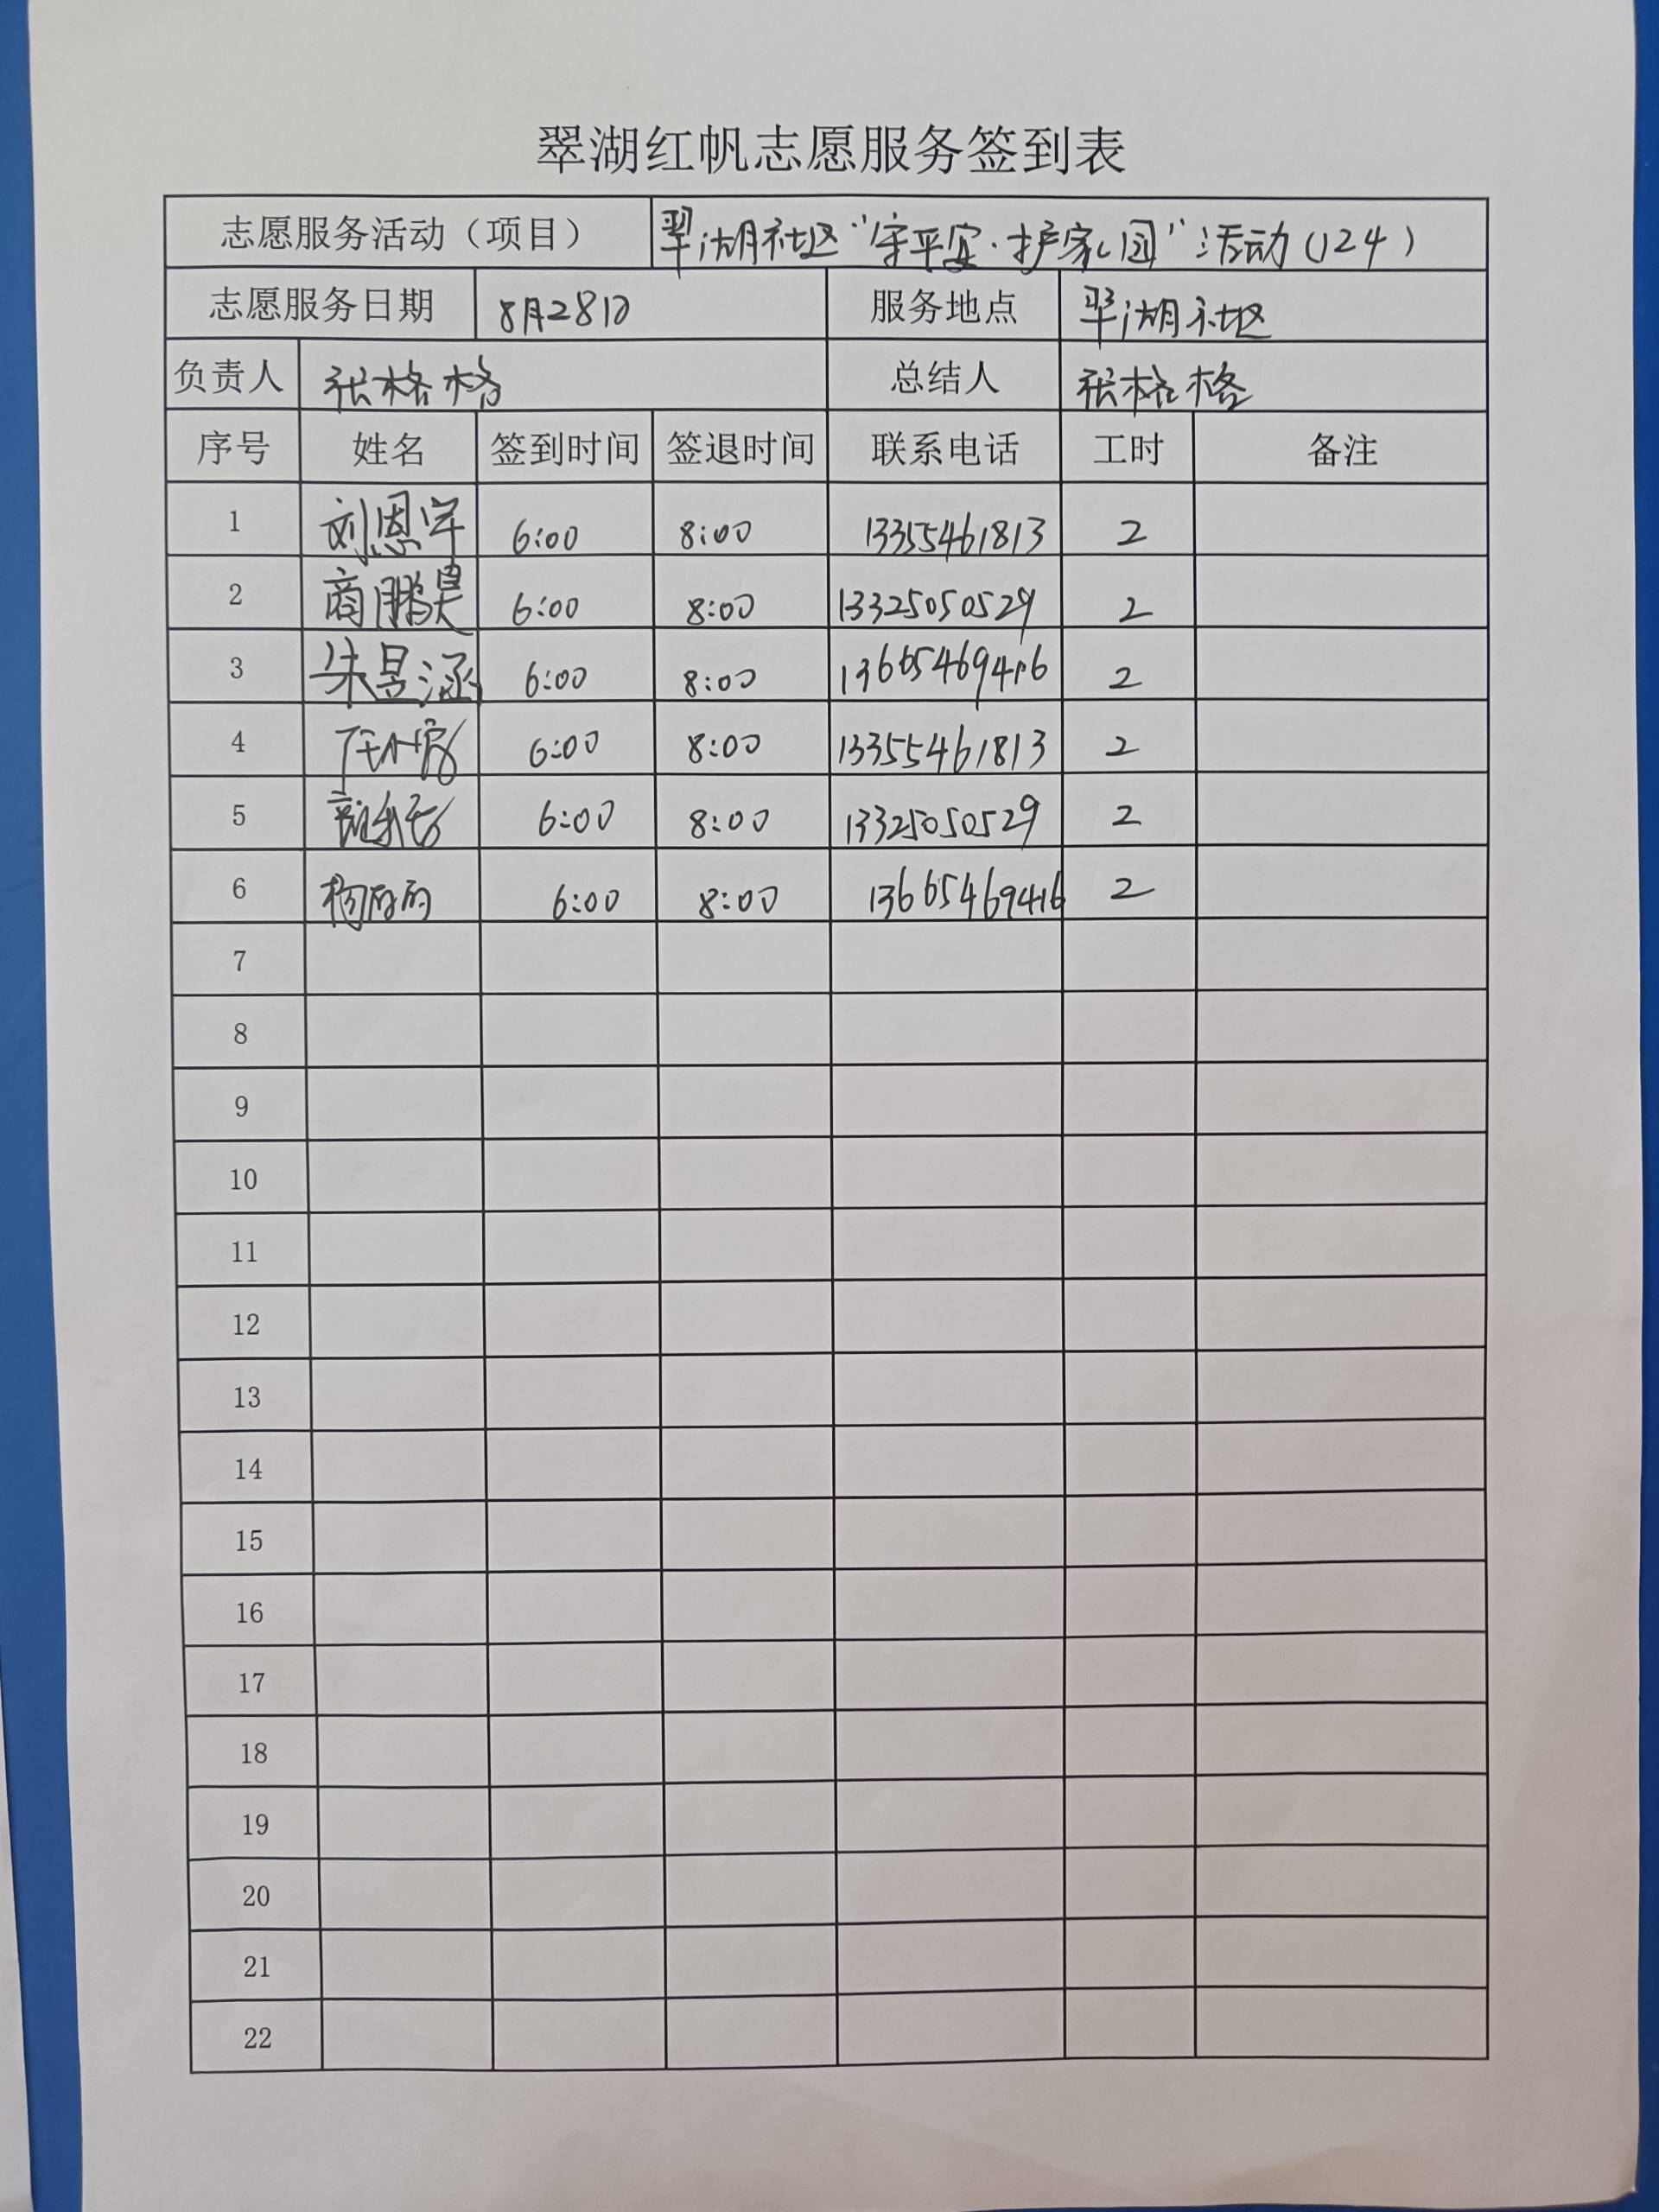 翠湖红帆志愿服务签到表
志愿服务活动（项目） 翠湖社区“守平安·护家园”活动(124)
志愿服务日期 8月28日 服务地点 翠湖社区
负责人 张格格 总结人 张格格
序号 姓名 签到时间 签退时间 联系电话 工时 备注
1 刘恩宇 6:00 8:00 13355461813 2
2 商鹏昊 6:00 8:00 13325050529 2
3 朱昱涵 6:00 8:00 13665469416 2
4 6:00 8:00 13355461813 2
5 6:00 8:00 13325050529 2
6 杨丽丽 6:00 8:00 13665469416 2
7
8
9
10
11
12
13
14
15
16
17
18
19
20
21
22